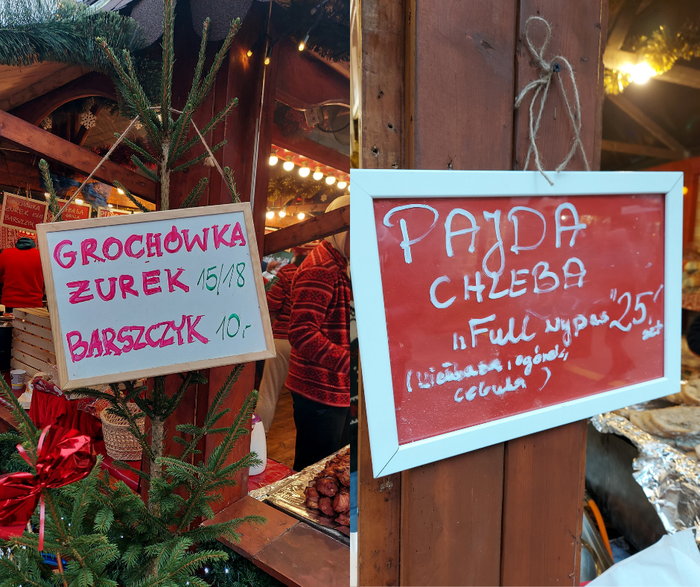 GROCHÓWKA
ŻUREK 15/18
BARSZCZYK 10,-
PAJDA
CHLEBA
"Full wypas" 25,-
(kiełbasa, ogórek,
cebula)